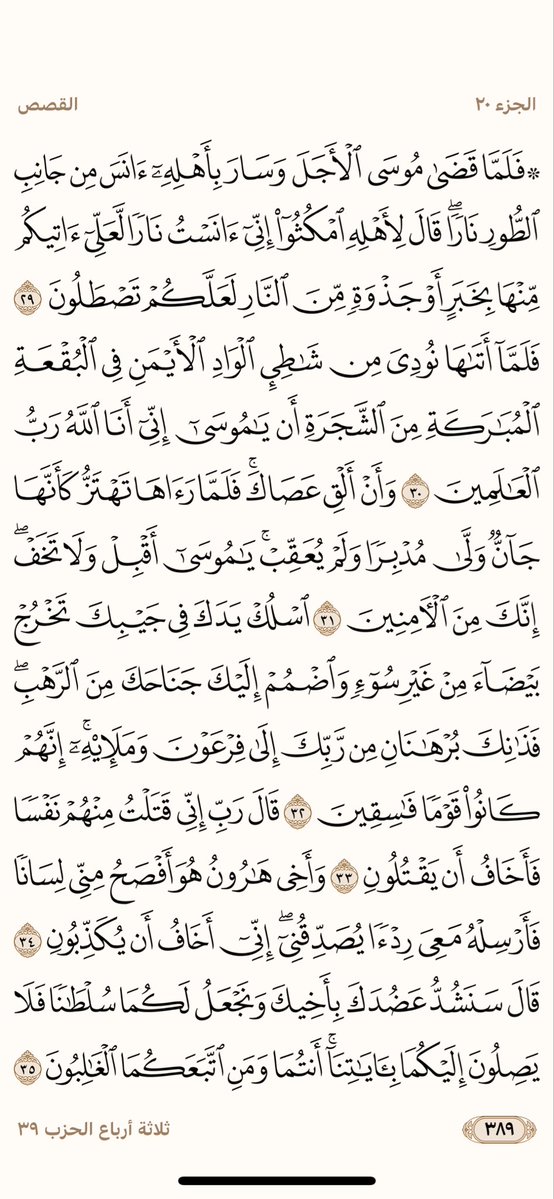 الجزء ٢٠
القصص
۞ فَلَمَّا قَضَىٰ مُوسَى ٱلْأَجَلَ وَسَارَ بِأَهْلِهِۦٓ ءَانَسَ مِن جَانِبِ
ٱلطُّورِ نَارًاۖ قَالَ لِأَهْلِهِ ٱمْكُثُوٓا۟ إِنِّىٓ ءَانَسْتُ نَارًا لَّعَلِّىٓ ءَاتِيكُم
مِّنْهَا بِخَبَرٍ أَوْ جَذْوَةٍ مِّنَ ٱلنَّارِ لَعَلَّكُمْ تَصْطَلُونَ ٢٩
فَلَمَّآ أَتَىٰهَا نُودِىَ مِن شَٰطِئِ ٱلْوَادِ ٱلْأَيْمَنِ فِى ٱلْبُقْعَةِ
ٱلْمُبَٰرَكَةِ مِنَ ٱلشَّجَرَةِ أَن يَٰمُوسَىٰٓ إِنِّىٓ أَنَا ٱللَّهُ رَبُّ
ٱلْعَٰلَمِينَ ٣٠ وَأَنْ أَلْقِ عَصَاكَۚ فَلَمَّا رَءَاهَا تَهْتَزُّ كَأَنَّهَا
جَآنٌّ وَلَّىٰ مُدْبِرًا وَلَمْ يُعَقِّبْۚ يَٰمُوسَىٰٓ أَقْبِلْ وَلَا تَخَفْۖ
إِنَّكَ مِنَ ٱلْءَامِنِينَ ٣١ ٱسْلُكْ يَدَكَ فِى جَيْبِكَ تَخْرُجْ
بَيْضَآءَ مِنْ غَيْرِ سُوٓءٍ وَٱضْمُمْ إِلَيْكَ جَنَاحَكَ مِنَ ٱلرَّهْبِۖ
فَذَٰنِكَ بُرْهَٰنَانِ مِن رَّبِّكَ إِلَىٰ فِرْعَوْنَ وَمَلَإِي۟هِۦٓۚ إِنَّهُمْ
كَانُوا۟ قَوْمًا فَٰسِقِينَ ٣٢ قَالَ رَبِّ إِنِّى قَتَلْتُ مِنْهُمْ نَفْسًا
فَأَخَافُ أَن يَقْتُلُونِ ٣٣ وَأَخِى هَٰرُونُ هُوَ أَفْصَحُ مِنِّى لِسَانًا
فَأَرْسِلْهُ مَعِىَ رِدْءًا يُصَدِّقُنِىٓۖ إِنِّىٓ أَخَافُ أَن يُكَذِّبُونِ ٣٤
قَالَ سَنَشُدُّ عَضُدَكَ بِأَخِيكَ وَنَجْعَلُ لَكُمَا سُلْطَٰنًا فَلَا
يَصِلُونَ إِلَيْكُمَا بِـَٔايَٰتِنَآۚ أَنتُمَا وَمَنِ ٱتَّبَعَكُمَا ٱلْغَٰلِبُونَ ٣٥
٣٨٩
ثلاثة أرباع الحزب ٣٩